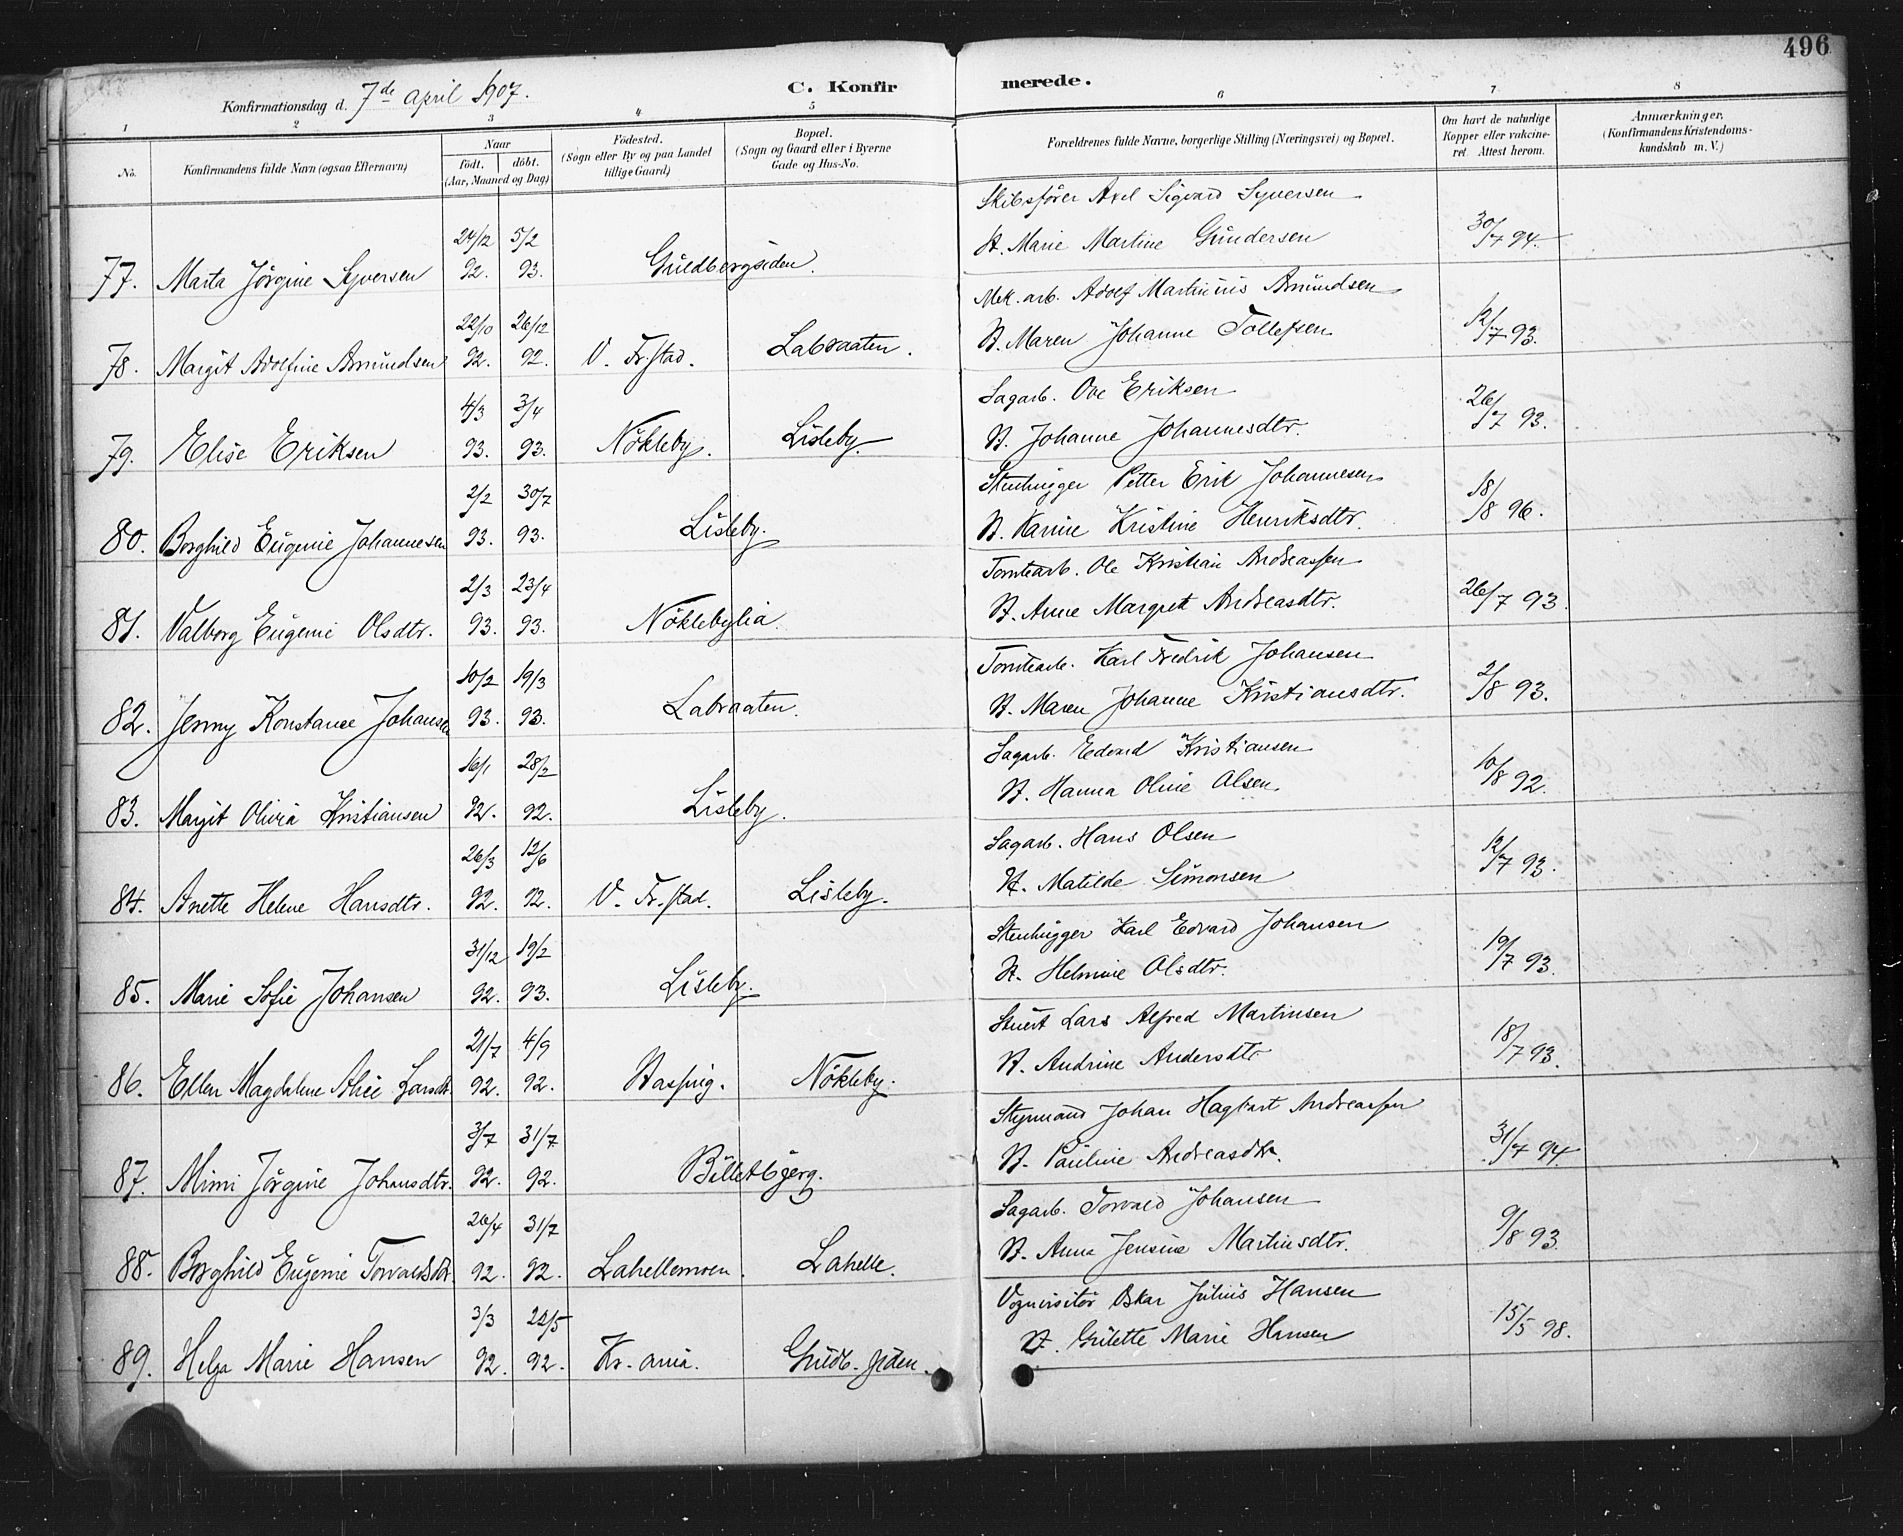 496
Konfirmationsdag d. 7de april 1907.
C. Konfirmerede.
1 2 3 4 5 6 7 8
No. Konfirmandens fulde Navn (ogsaa Efternavn) Naar födt. döbt. (Aar, Maaned og Dag) Födested. (Sogn eller By og paa Landet tillige Gaard) Bopæl. (Sogn og Gaard eller i Byerne Gade og Hus-No. Forældrenes fulde Navne, borgerlige Stilling (Næringsvei) og Bopæl. Om havt de naturlige Kopper eller vakcineret. Attest herom. Anmærkninger. (Konfirmandens Kristendomskundskab m. V.)
Skibsfører Axel Sigvard Syversen
24/12 5/2 H. Marie Martine Gundersen 30/7 94
77. Marta Jörgine Syversen 92. 93. Guldbergsiden.
Mek. arb. Adolf Martinius Amundsen
22/10 26/12 H. Maren Johanne Tollefsen 12/7 93.
78. Margit Adolfine Amundsen 92. 92. V. Fr.stad. Labraaten.
Sagarb. Ove Eriksen
4/3 3/4 H. Johanne Johannesdtr. 26/7 93.
79. Elise Eriksen 93. 93. Nökleby. Lisleby.
Stenhugger Petter Erik Johannesen
2/2 30/7 H. Karine Kristine Henriksdtr. 18/8 96.
80. Borghild Eugenie Johannesen 93. 93. Lisleby.
Tomtearb. Ole Kristian Andreassen
2/3 23/4 H. Anne Margret Andreasdtr. 26/7 93.
81. Valborg Eugenie Olsdtr. 93. 93. Nöklebylia.
Tomtearb. Karl Fredrik Johansen
10/2 19/3 H. Maren Johanne Kristiansdtr. 2/8 93.
82. Jenny Konstance Johansen 93. 93. Labraaten.
Sagarb. Edvard Kristiansen
16/1 28/2 H. Hanna Oline Olsen. 10/8 92.
83. Margit Olivia Kristiansen 92. 92. Lisleby.
Sagarb. Hans Olsen
26/3 12/6 H. Matilde Simonsen 12/7 93.
84. Anette Helene Hansdtr. 92. 92. V. Fr.stad. Lisleby.
Stenhugger Karl Edvard Johansen
31/12 19/2 H. Helmine Olsdtr. 19/7 93.
85. Marie Sofie Johansen 92. 93. Lisleby.
Stuert Lars Alfred Martinsen
21/7 4/9 H. Andrine Andersdtr 18/7 93.
86. Ellen Magdalene Alice Larsdtr. 92. 92. Nökleby.
Styrmand Johan Hagbart Andreassen
3/7 31/7 H. Pauline Andreasdtr. 31/7 94.
87. Mimi Jörgine Johansdtr. 92. 92. Billetbjerg.
Sagarb. Torvald Johansen
26/4 31/7 H. Anna Jensine Martinsdtr. 9/8 93.
88. Borghild Eugenie Torvaldsdtr. 92. 92. Lahellemoen. Lahelle.
Vognvisitör Oskar Julius Hansen
3/3 22/5 H. Gulette Marie Hansen 15/5 98.
89. Helga Marie Hansen 92. 92. Kr. ania. Guldb.siden.